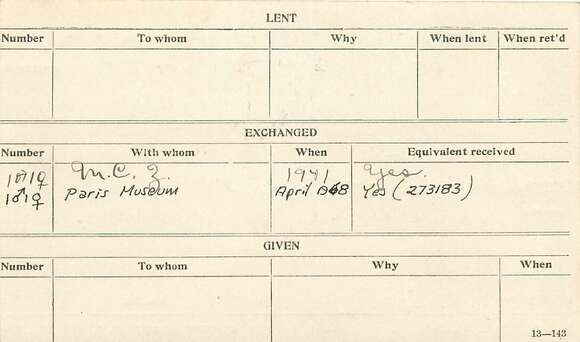 LENT
Number To whom Why When lent When ret'd
EXCHANGED
Number With whom When Equivalent received
1♂1♀ M.C.Z. 1941 Yes.
1♂1♀ Paris Museum April 1968 Yes (273183)
GIVEN
Number To whom Why When
13—143